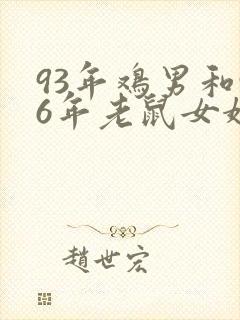 93年鸡男和
6年老鼠女
趙世宏